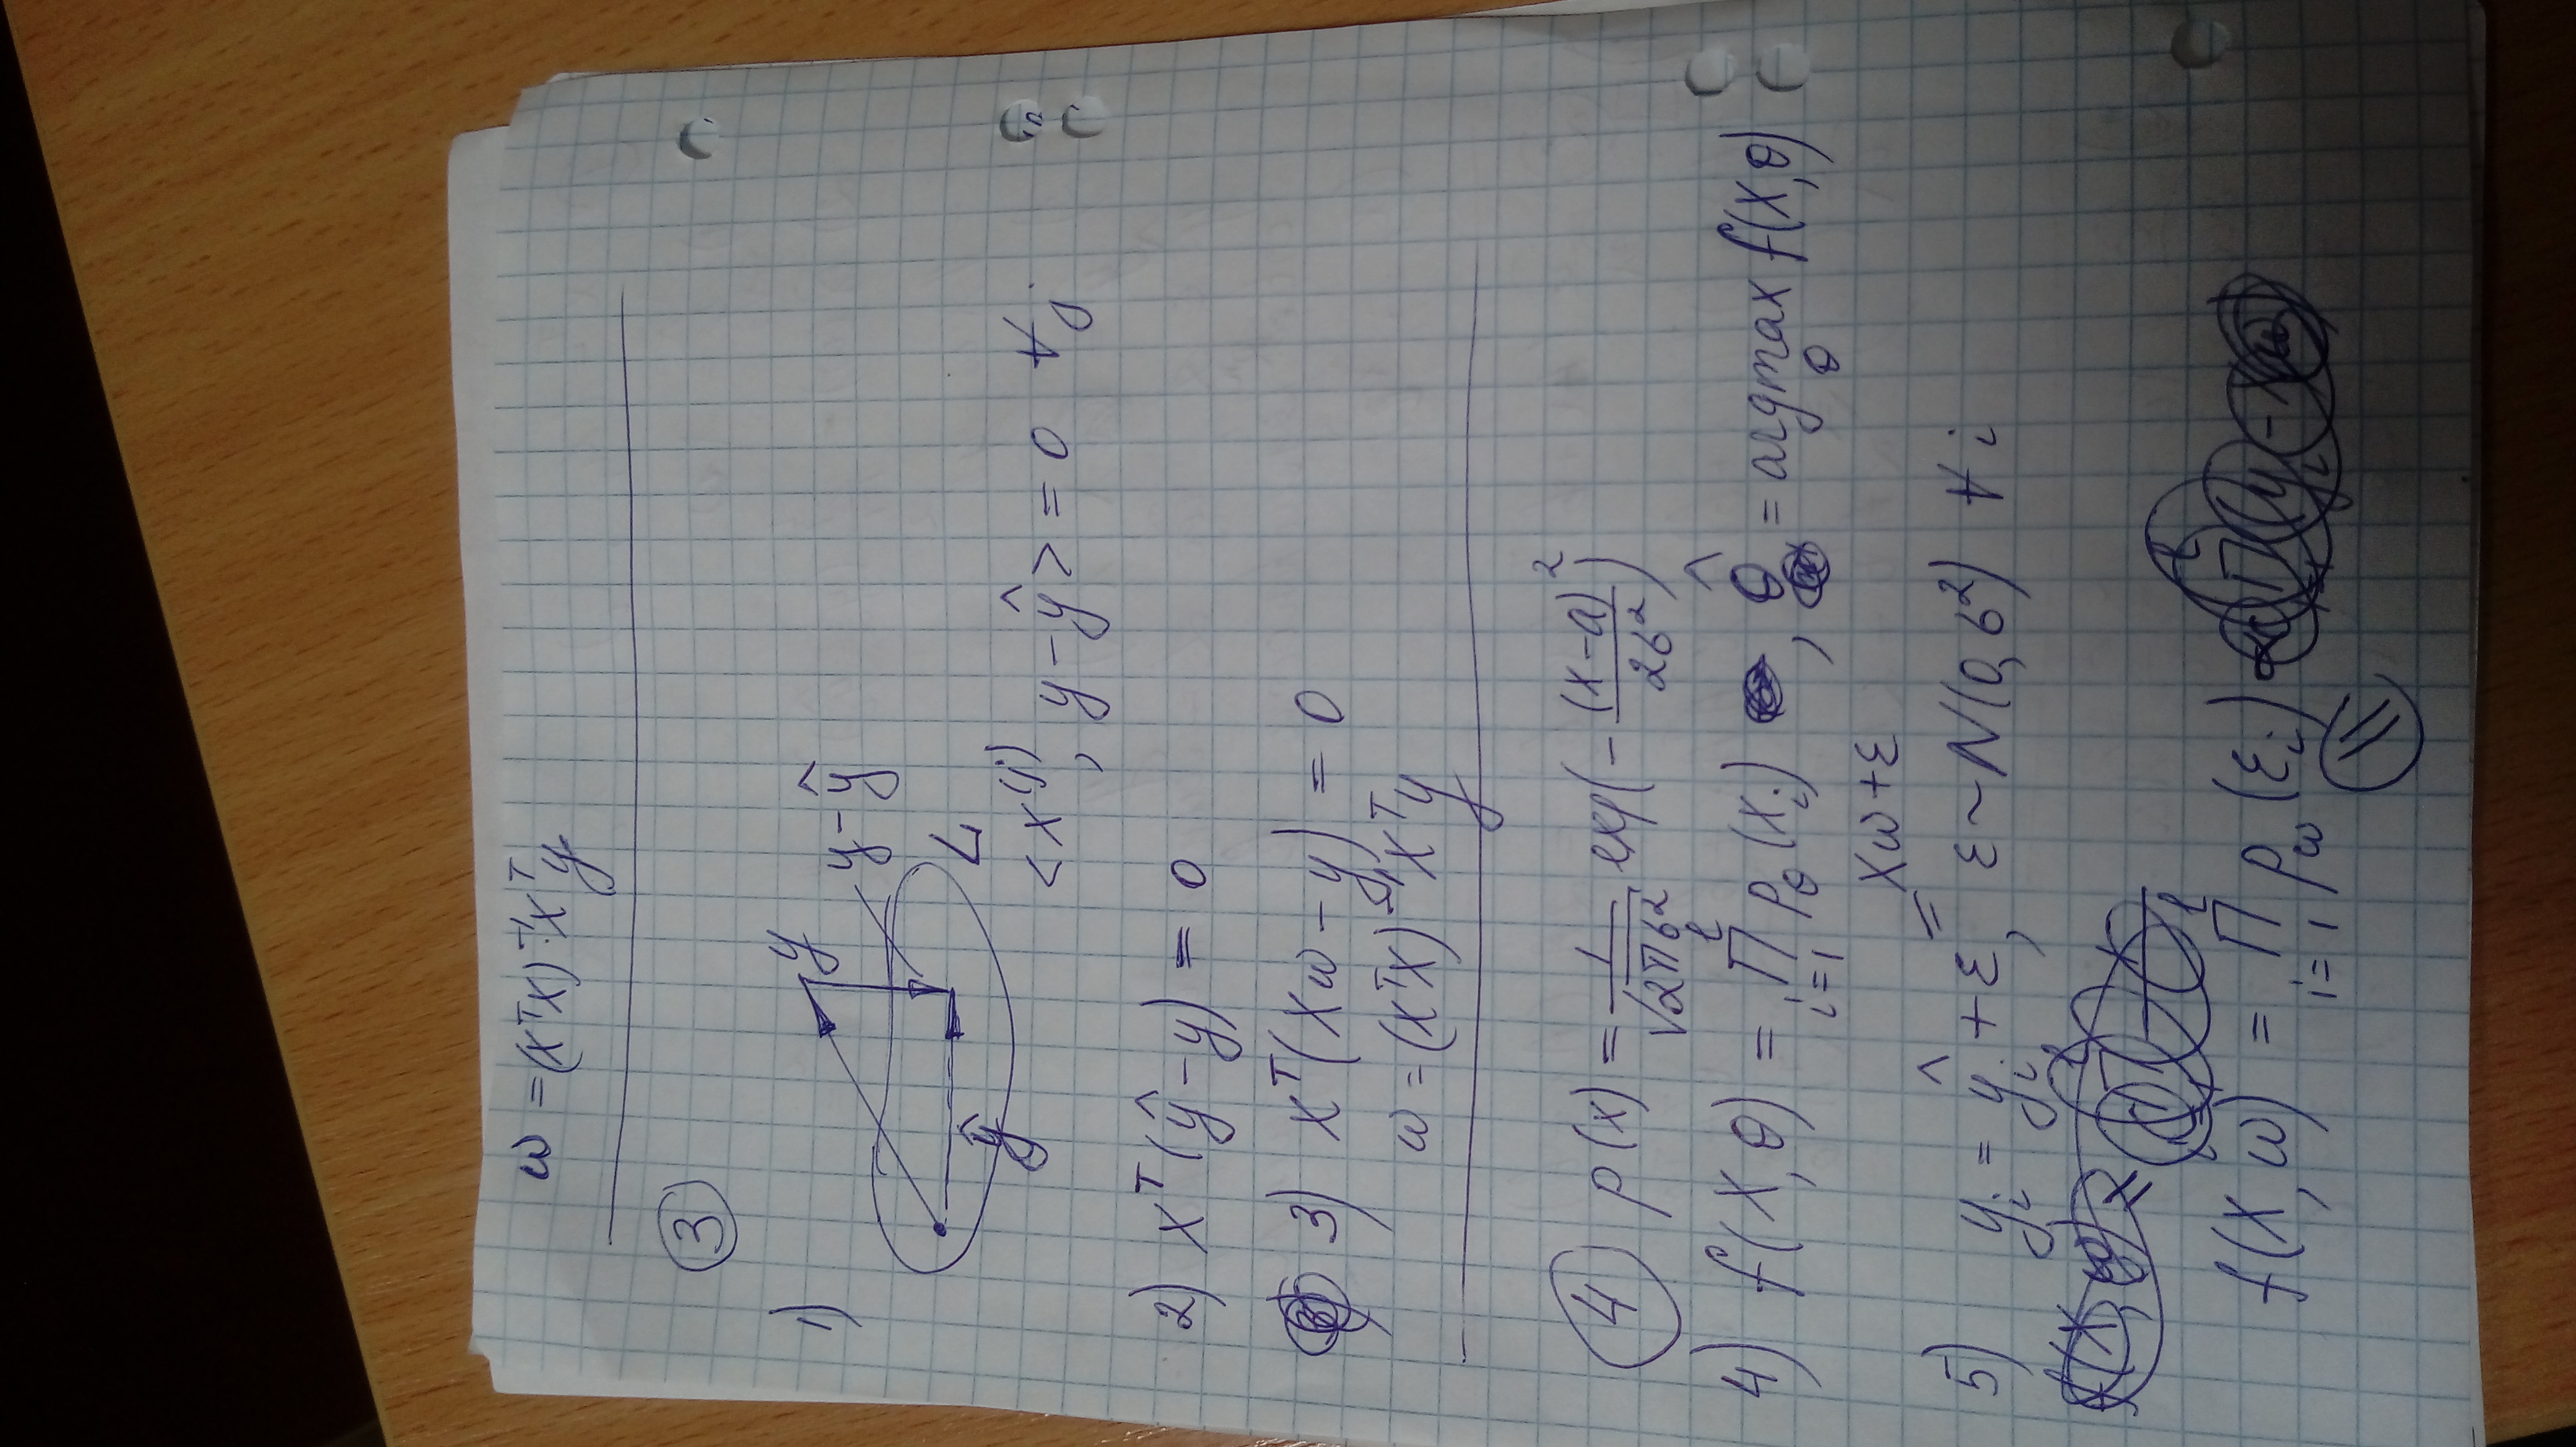 ω = (XᵀX)⁻¹Xᵀy
3
1)
y
y-ŷ
ŷ
L
<x⁽ʲ⁾, y-ŷ> = 0 ∀j
2) Xᵀ(ŷ-y) = 0
3) Xᵀ(Xω-y) = 0
ω = (XᵀX)⁻¹Xᵀy
4 p(x) = 1/√(2πσ²) exp(-(x-a)²/2σ²)
4) f(X,θ) = ∏ᵢ₌₁ˡ p_θ(xᵢ), θ̂ = argmax_θ f(X,θ)
= Xω+ε
5) yᵢ = ŷᵢ + ε, ε~N(0,σ²) ∀i
f(X,ω) = ∏ᵢ₌₁ˡ p_ω(εᵢ)
=